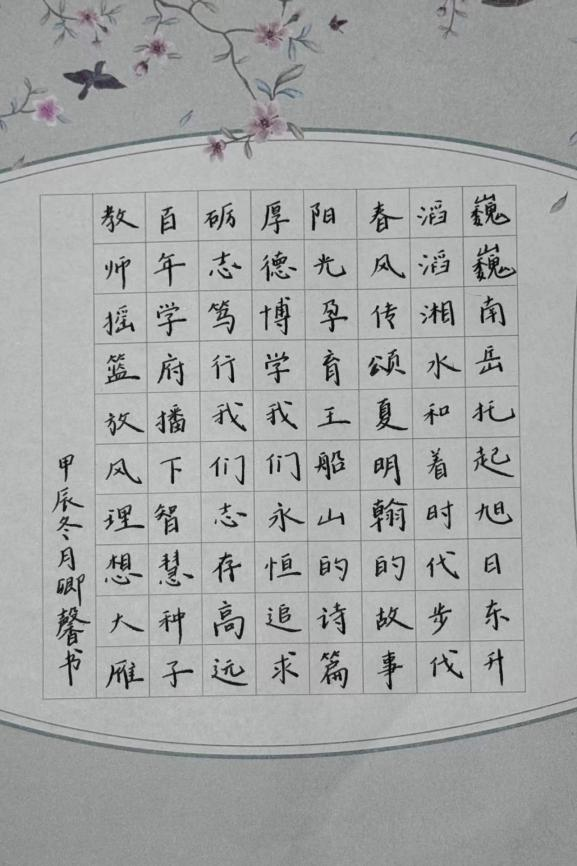 巍巍南岳托起旭日东升
滔滔湘水和着时代步伐
春风传颂夏明翰的故事
阳光孕育王船山的诗篇
厚德博学我们永恒追求
砺志笃行我们志存高远
百年学府播下智慧种子
教师摇篮放风理想大雁
甲辰冬月卿馨书